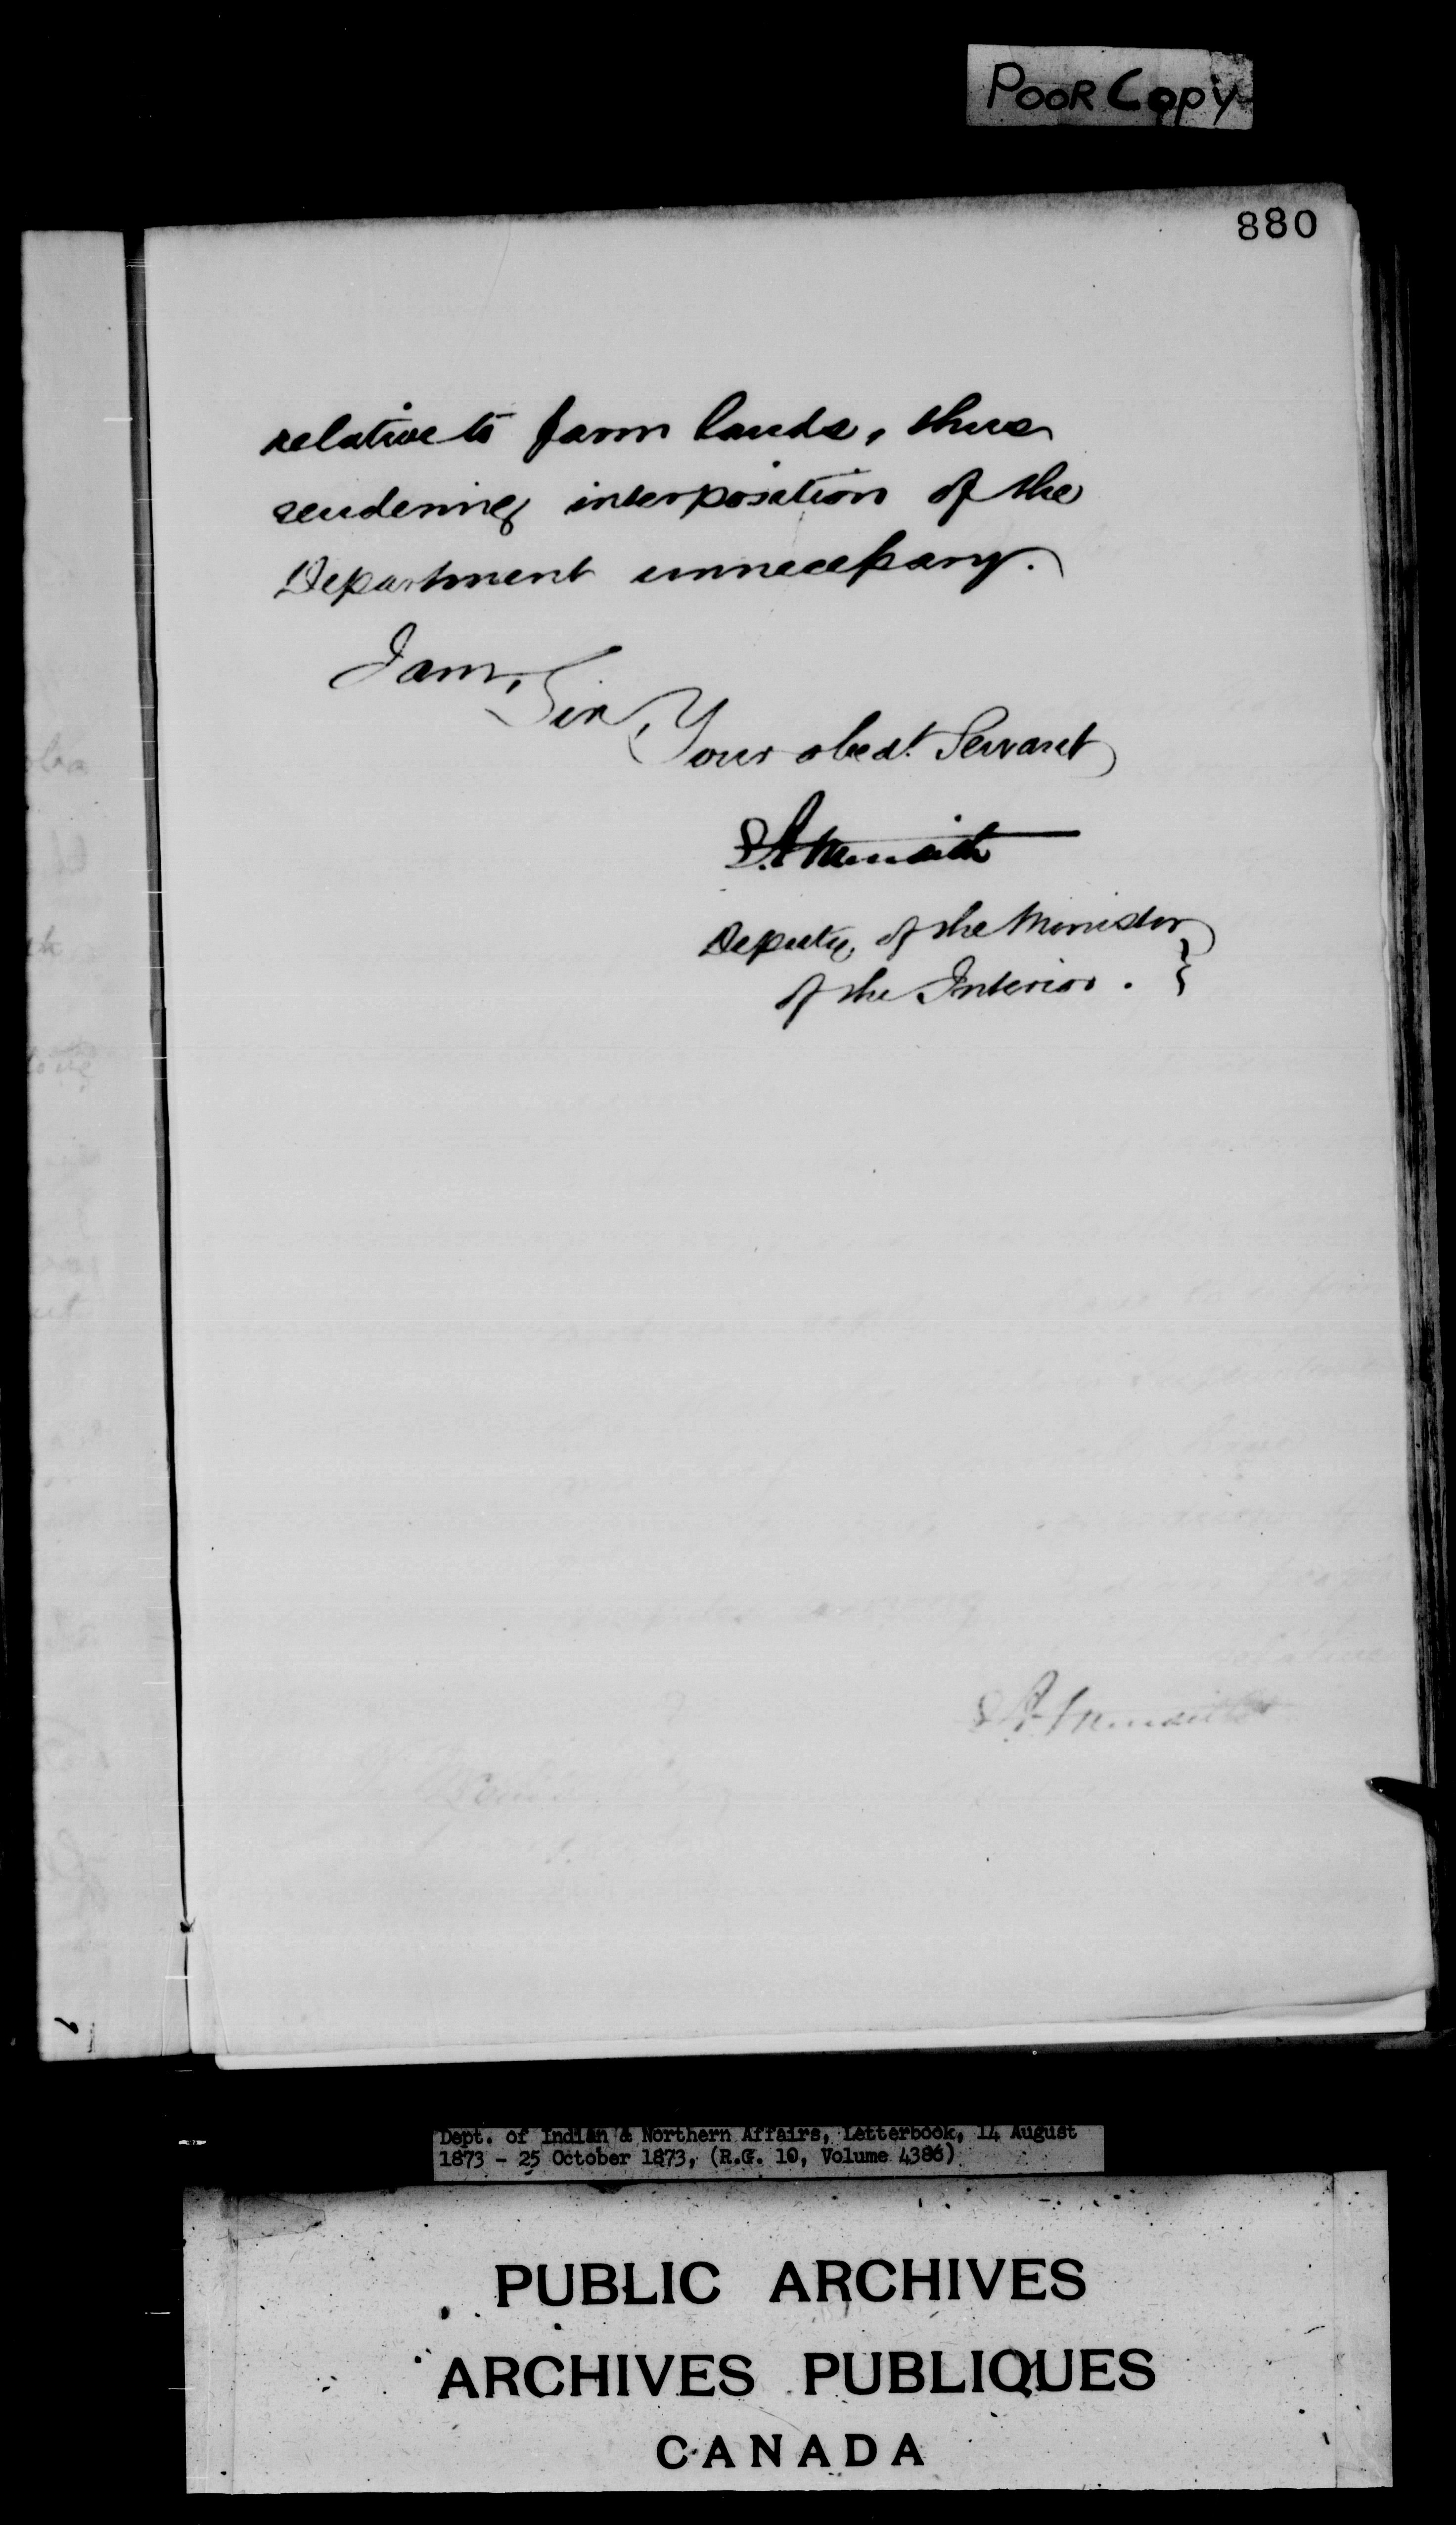 POOR COPY
880
relative to farm lands, thus
rendering interposition of the
Department unnecessary.
I am,
Sir,
Your obedt. Servant
Deputy of the Minister
of the Interior.
and
have to inform
have
among Indian people
relative
Dept. of Indian & Northern Affairs, Letterbook, 14 August
1873 - 25 October 1873, (R.G. 10, Volume 4386)
PUBLIC ARCHIVES
ARCHIVES PUBLIQUES
CANADA